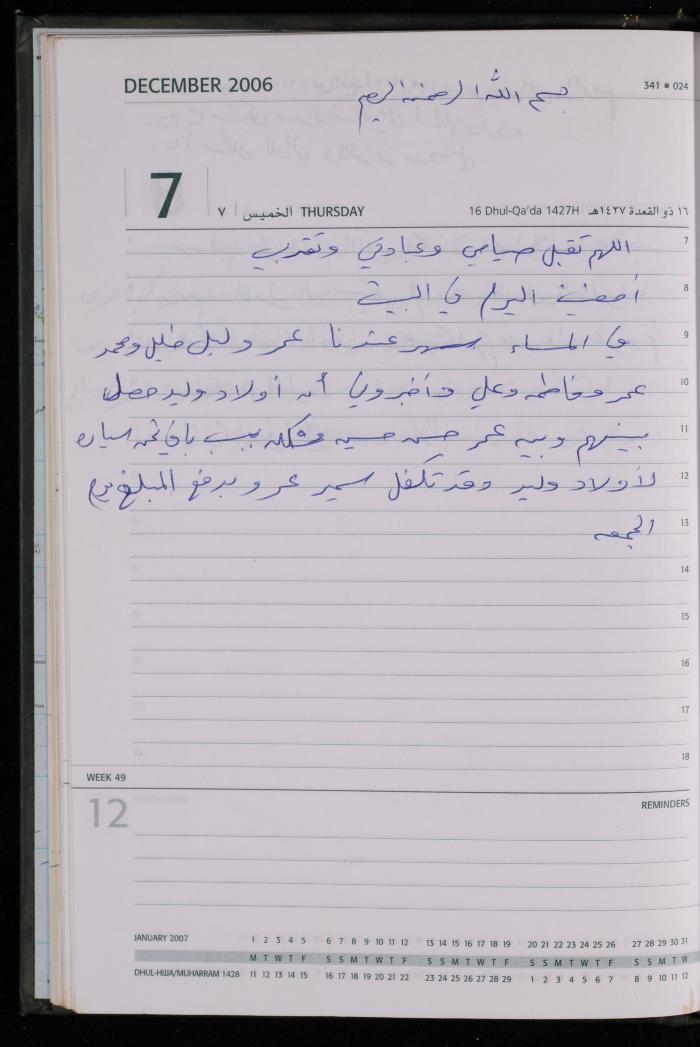 DECEMBER 2006
341 ■ 024
بسم الله الرحمن الرحيم
7
٧ الخميس THURSDAY
16 Dhul-Qa'da 1427H ١٦ ذو القعدة ١٤٢٧هـ
7 اللهم تقبل صيامي وعبادتي وتقربي
8 أمضيت اليوم في البيت
9 في المساء سهر عندنا عمر وليلى خليل ومحمد
10 عمر وفاطمه وعلي وأخبروني أن أولاد وليد حصل
11 بينهم وبين عمر حسن حسين مشكله بسبب باقي ثمن سياره
12 لأولاد وليد وقد تكفل سمير عمر و يدفع المبلغ يوم
13 الجمعه
14
15
16
17
18
WEEK 49
12
REMINDERS
JANUARY 2007 1 2 3 4 5 6 7 8 9 10 11 12 13 14 15 16 17 18 19 20 21 22 23 24 25 26 27 28 29 30 31
M T W T F S S M T W T F S S M T W T F S S M T W T F S S M T W
DHUL-HIJJA/MUHARRAM 1428 11 12 13 14 15 16 17 18 19 20 21 22 23 24 25 26 27 28 29 1 2 3 4 5 6 7 8 9 10 11 12